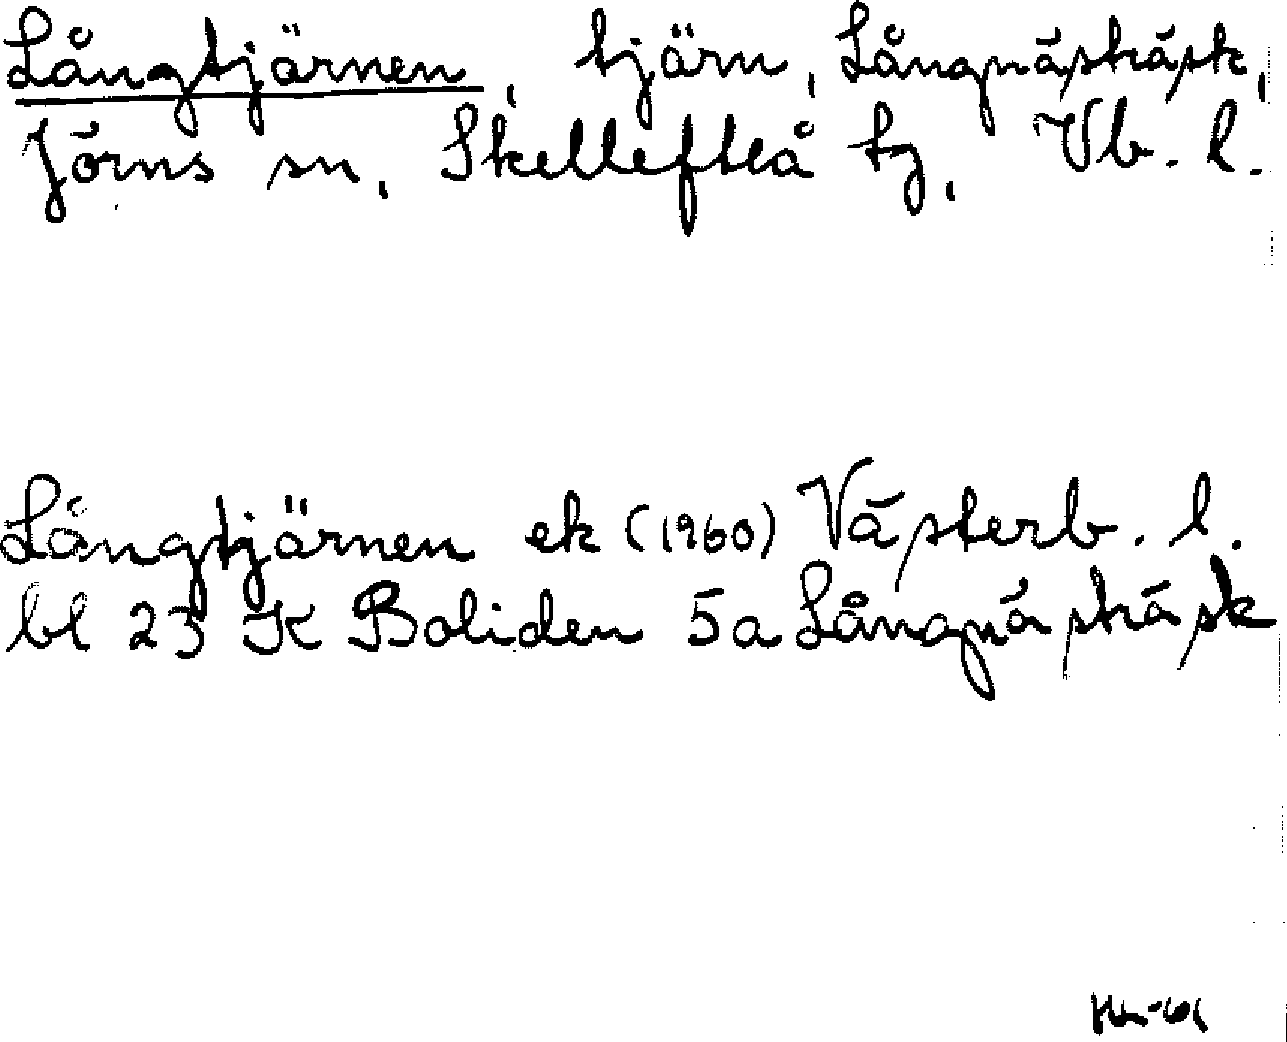 Långtjärnen, tjärn, Långnästräsk,
Jörns sn, Skellefteå tg, Vb. l.
Långtjärnen ek (1960) Västerb. l.
bl 23 K Boliden 5a Långnästräsk